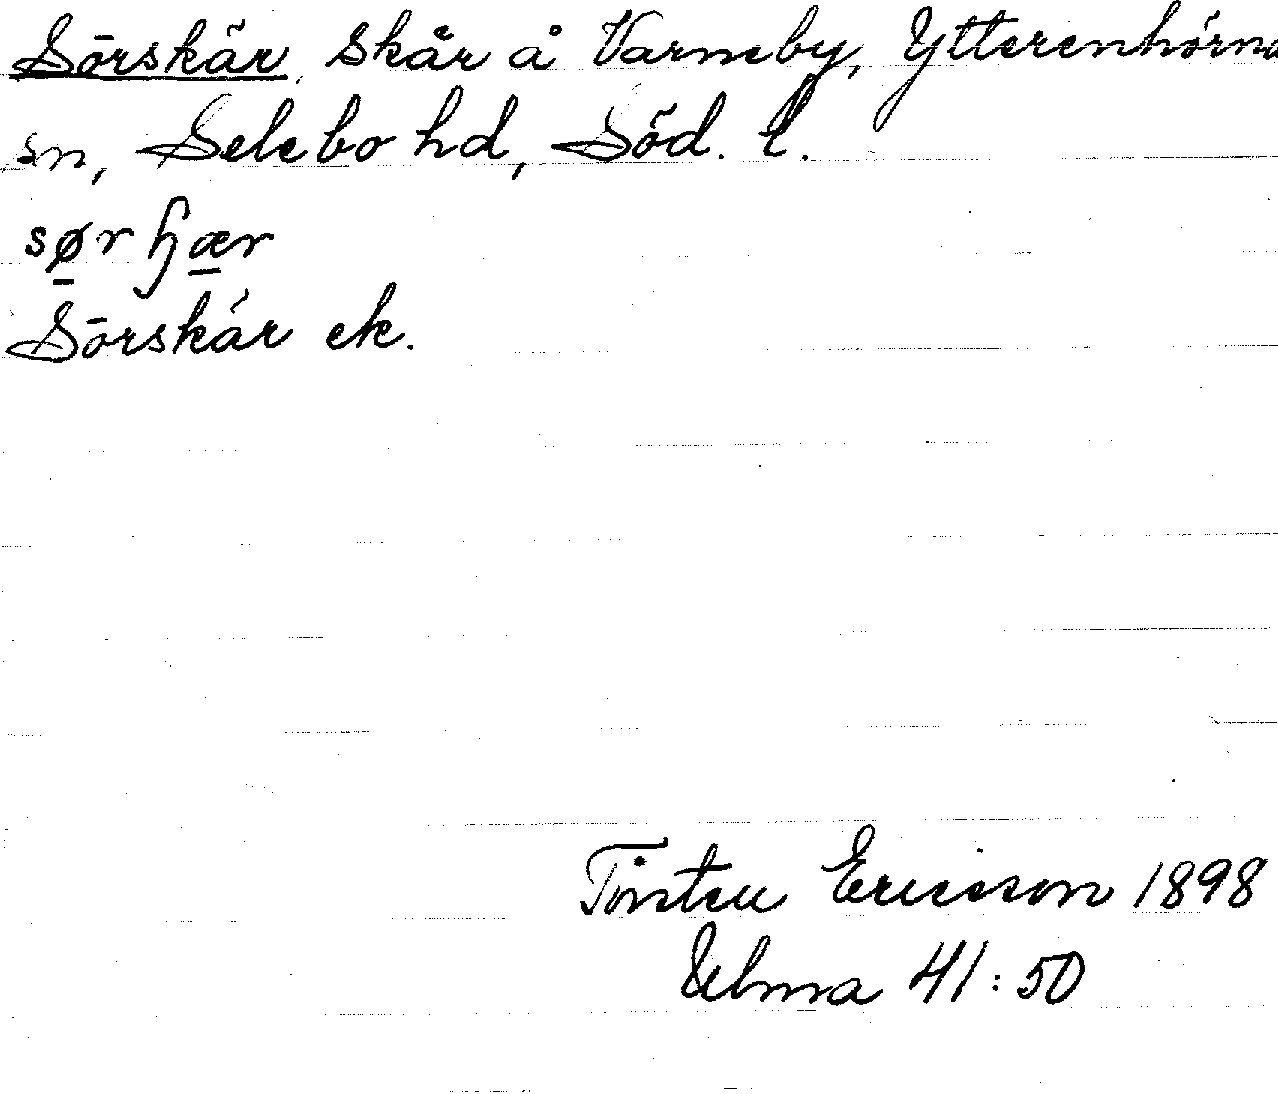 Sörskär, skär å Varneby, Ytterenhörna
sn, Selebo hd, Söd. l.
Sörskär ek.
Torsten Ericsson 1898
Ulma 41:50